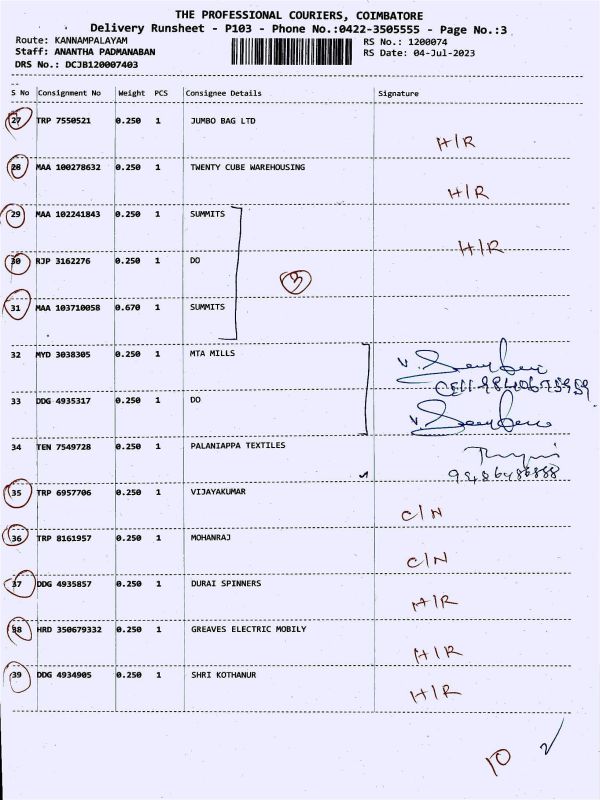 THE PROFESSIONAL COURIERS, COIMBATORE
Delivery Runsheet - P103 - Phone No.:0422-3505555 - Page No.:3
Route: KANNAMPALAYAM RS No.: 1200074
Staff: ANANTHA PADMANABAN RS Date: 04-Jul-2023
DRS No.: DCJB120007403
S No Consignment No Weight PCS Consignee Details Signature
27 TRP 7550521 0.250 1 JUMBO BAG LTD
H/R
28 MAA 100278632 0.250 1 TWENTY CUBE WAREHOUSING
H/R
29 MAA 102241843 0.250 1 SUMMITS
H/R
30 RJP 3162276 0.250 1 DO
3
31 MAA 103710058 0.670 1 SUMMITS
32 MYD 3038305 0.250 1 MTA MILLS
33 DDG 4935317 0.250 1 DO
34 TEN 7549728 0.250 1 PALANIAPPA TEXTILES
35 TRP 6957706 0.250 1 VIJAYAKUMAR
C/N
36 TRP 8161957 0.250 1 MOHANRAJ
C/N
37 DDG 4935857 0.250 1 DURAI SPINNERS
H/R
38 HRD 350679332 0.250 1 GREAVES ELECTRIC MOBILY
H/R
39 DDG 4934905 0.250 1 SHRI KOTHANUR
H/R
10